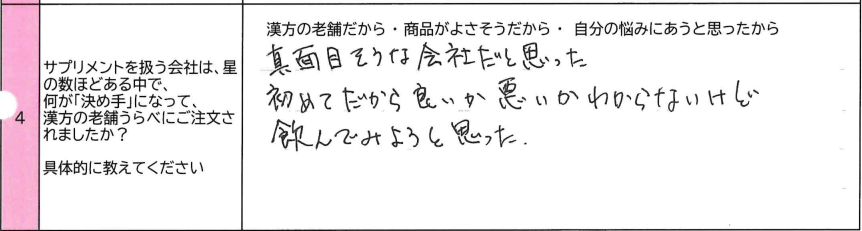 4
サプリメントを扱う会社は、星
の数ほどある中で、
何が「決め手」になって、
漢方の老舗うらべにご注文さ
れましたか？
具体的に教えてください
漢方の老舗だから・商品がよさそうだから・ 自分の悩みにあうと思ったから
真面目そうな会社だと思った
初めてだから良いか悪いかわからないけど
飲んでみようと思った.